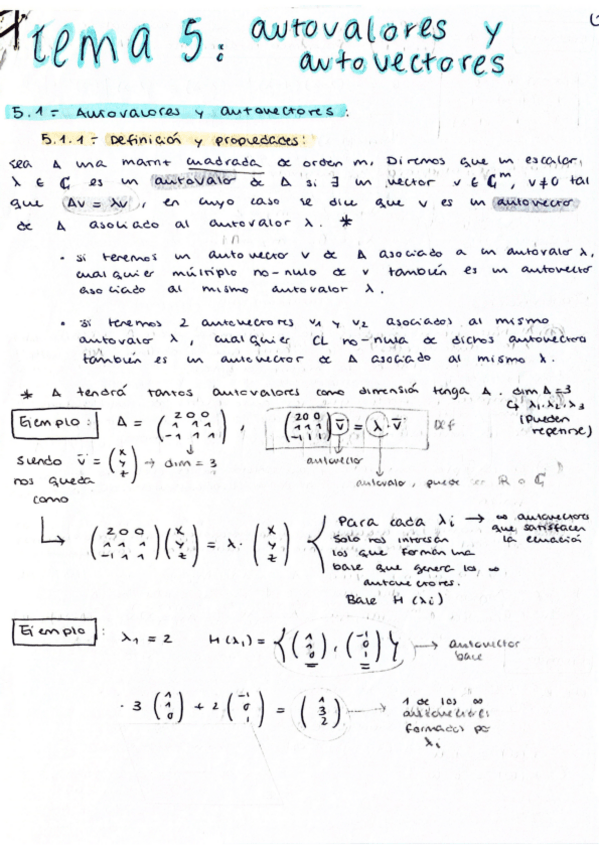 Tema 5: autovalores y
autovectores
5.1- Autovalores y autovectores:
5.1.1- Definición y propiedades:
sea A una matriz cuadrada de orden m. Diremos que un escalar,
λ ∈ ℂ es un autovalo de A si ∃ un vector v ∈ ℂᵐ, v≠0 tal
que Av = λv, en cuyo caso se dice que v es un autovector
de A asociado al autovalor λ. *
· si tenemos un autovector v de A asociado a un autovalor λ,
cualquier múltiplo no-nulo de v también es un autovector
asociado al mismo autovalor λ.
· si tenemos 2 autovectores v1 y v2 asociados al mismo
autovalor λ, cualquier CL no-nula de dichos autovectores
también es un autovector de A asociado al mismo λ.
* A tendrá tantos autovalores como dimensión tenga A. dim A=3
↳ λ1, λ2, λ3
(Pueden
repetirse)
Ejemplo: A = (2 0 0
1 1 1
-1 1 1), (2 0 0
1 1 1
-1 1 1) v̄ = λ · v̄ DEF
siendo v̄ = (x
y
z) → dim = 3
autovector
nos queda
autovalo, puede ser ℝ o ℂ
como
↳ (2 0 0
1 1 1
-1 1 1) (x
y
z) = λ · (x
y
z)
Para cada λi → ∞ autovectores
que satisfacen
la ecuación
solo nos interesan
los que forman una
base que genera los ∞
autovectores.
Base H(λi)
Ejemplo: λ1 = 2 H(λ1) = {(1
1
0), (-1
0
1)} → autovector
base
· 3 (1
1
0) + 2 (-1
0
1) = (1
3
2) → 1 de los ∞
autovectores
formados por
λ1